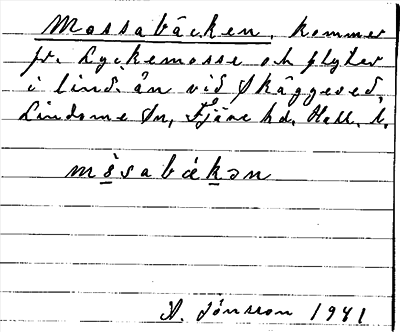 Mossabäcken, kommer
fr. Lyckemosse och flyter
i lind. ån vid Skäggered,
Lindome sn, Fjäre hd. Hall. l.
mòsabäkən
A. Jónsson 1941